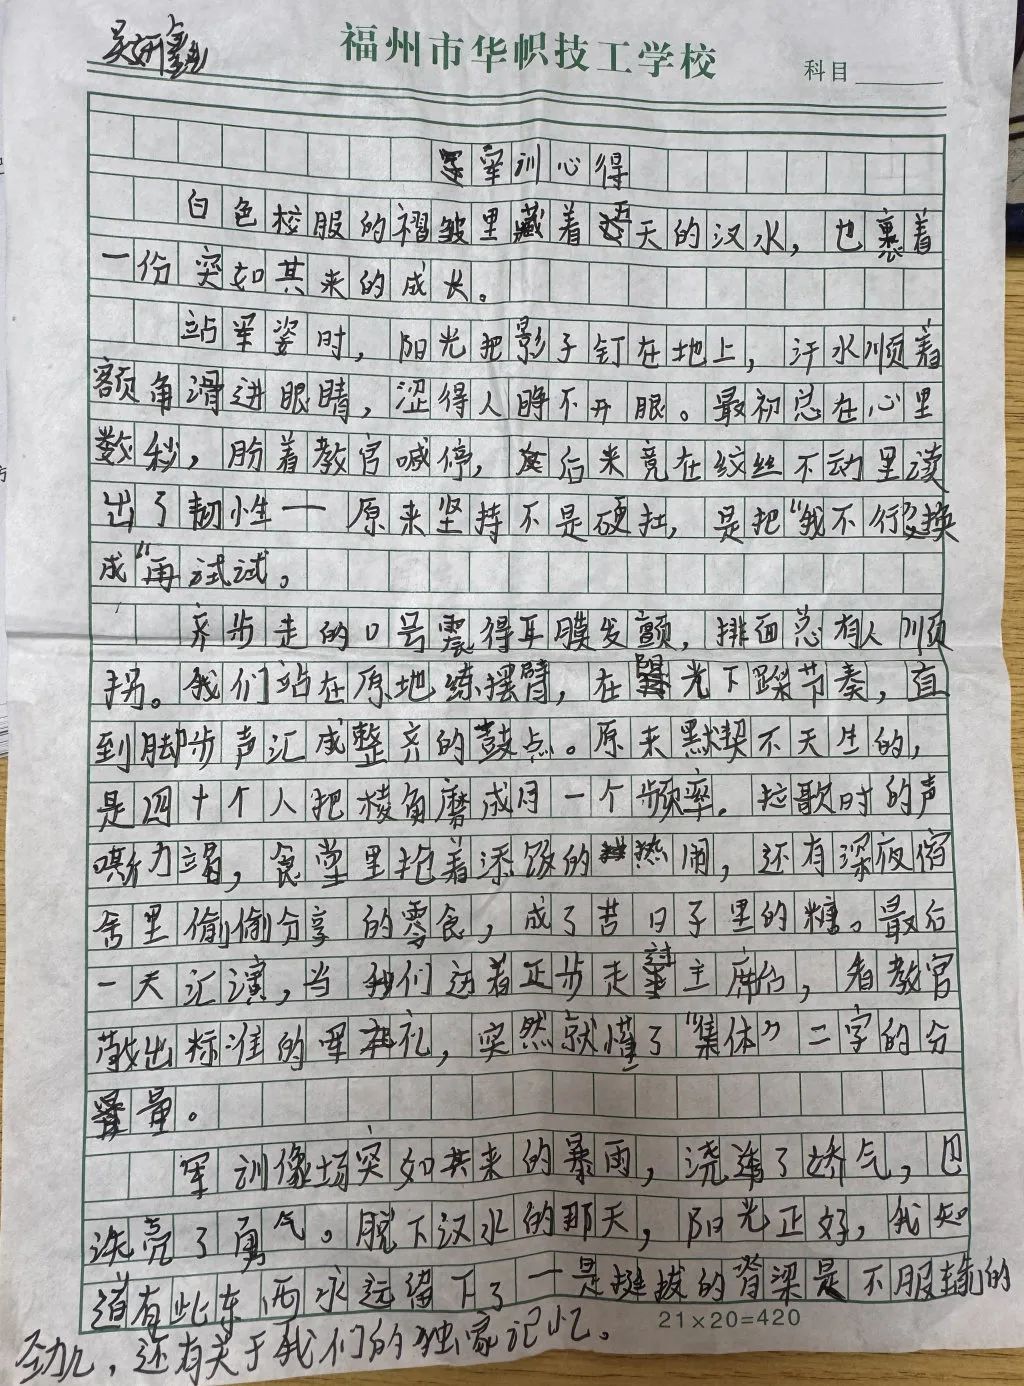 吴妍鑫
福州市华帜技工学校
科目
军训心得
白色校服的褶皱里藏着五天的汉水，也裹着
一份突如其来的成长。
站军姿时，阳光把影子钉在地上，汗水顺着
额角滑进眼睛，涩得人睁不开眼。最初总在心里
数秒，盼着教官喊停，后来竟在纹丝不动里读
出了韧性一原来坚持不是硬扛，是把“我不行”换
成“再试试。
齐步走的口号震得耳膜发颤，排面总有人顺
拐。我们站在原地练摆臂，在阳光下踩节奏，直
到脚步声汇成整齐的鼓点。原来默契不天生的，
是四十个人把棱角磨成同一个频率。拉歌时的声
嘶力竭，食堂里抢着添饭的热闹，还有深夜宿
舍里偷偷分享的零食，成了苦日子里的糖。最后
一天汇演，当我们迈着正步走过主席台，看教官
敬出标准的军礼，突然就懂了“集体”二字的分
量。
军训像场突如其来的暴雨，浇透了娇气，也
洗亮了勇气。脱下汉水的那天，阳光正好，我知
道有些东西永远留下了一是挺拔的脊梁是不服输的
劲儿，还有关于我们的独家记忆。
21×20=420